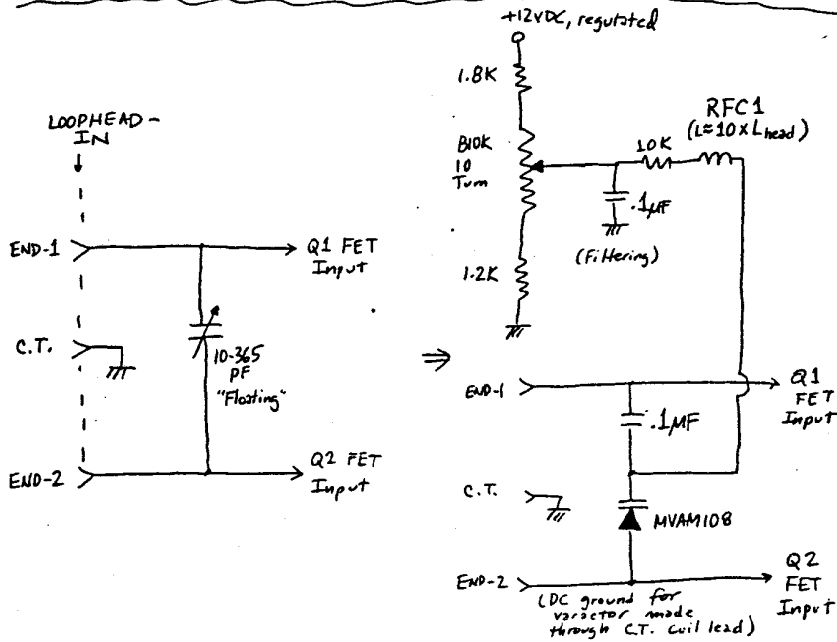 LOOPHEAD-
IN
END-1
Q1 FET
Input
C.T.
10-365
PF
"Floating"
END-2
Q2 FET
Input
⇒
+12VDC, regulated
1.8K
B10K
10
Turn
1.2K
10K
RFC1
(L≈10×Lhead)
.1μF
(Filtering)
END-1
Q1
FET
Input
.1μF
C.T.
MVAM108
END-2
Q2
FET
Input
(DC ground for
varactor made
through C.T. coil lead)